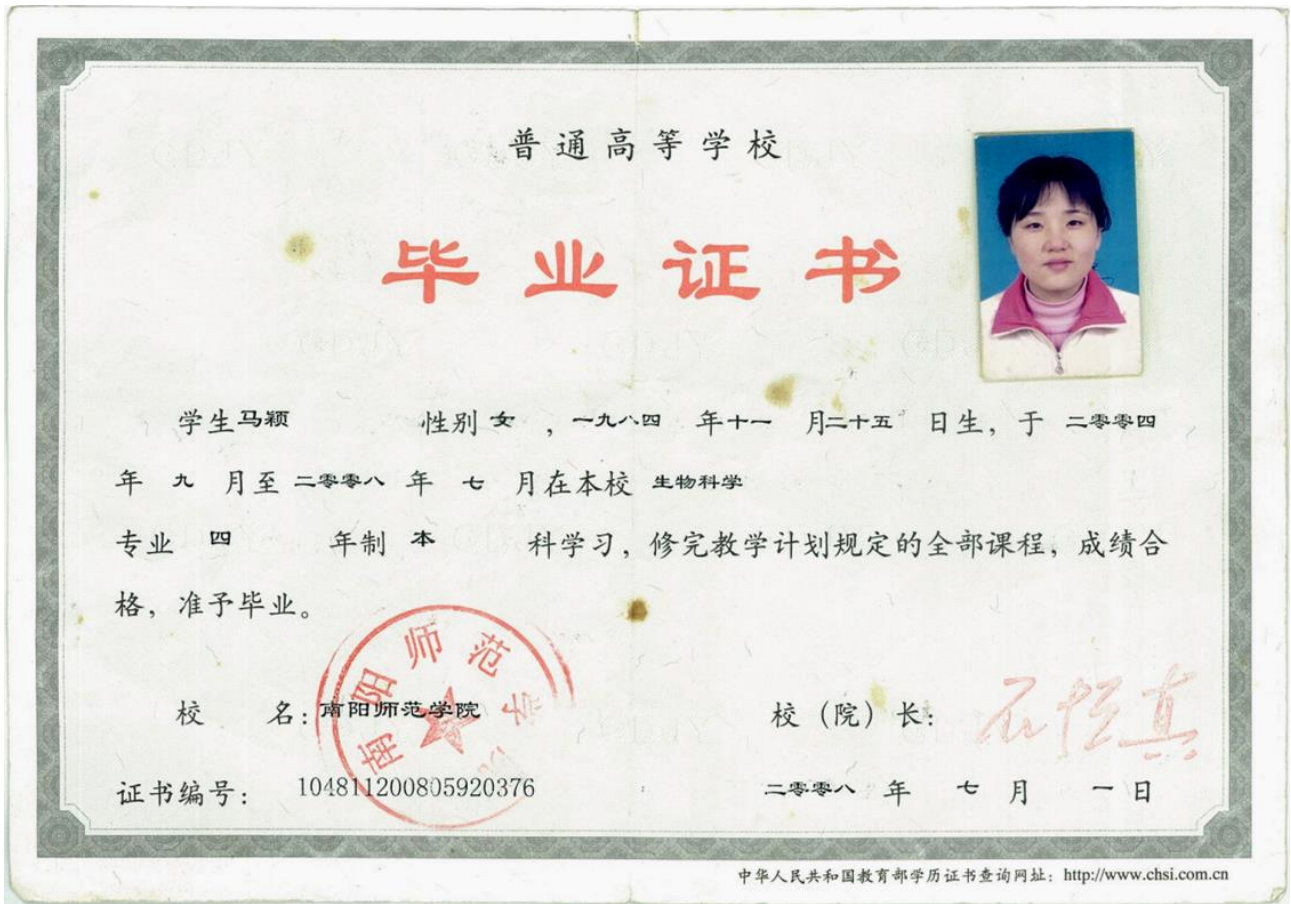 普通高等学校
毕业证书
学生马颖 性别女，一九八四年十一月二十五日生，于二零零四
年九月至二零零八年七月在本校生物科学
专业四年制本科学习，修完教学计划规定的全部课程，成绩合
格，准予毕业。
南阳师范学院
校名：南阳师范学院 校（院）长：
证书编号：104811200805920376 二零零八年七月一日
中华人民共和国教育部学历证书查询网址：http://www.chsi.com.cn